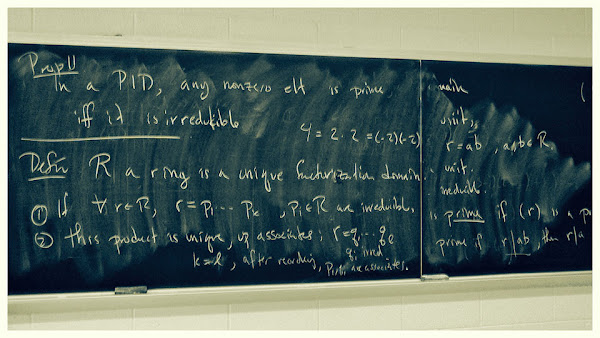 Prop 11
In a PID, any nonzero elt is prime
iff it is irreducible
4 = 2·2 = (-2)(-2)
Defn R a ring is a unique factorization domain.
① If ∀ r∈R, r = p₁ ... pₖ , pᵢ∈R are irreducible.
② this product is unique, up associates; r = q₁ ... qₗ
qᵢ irred.
k = l, after reordering, pᵢ, qᵢ are associates.
unit,
r = ab , a,b∈R.
unit.
irreducible.
is prime if (r) is a
prime if r|ab, then r|a